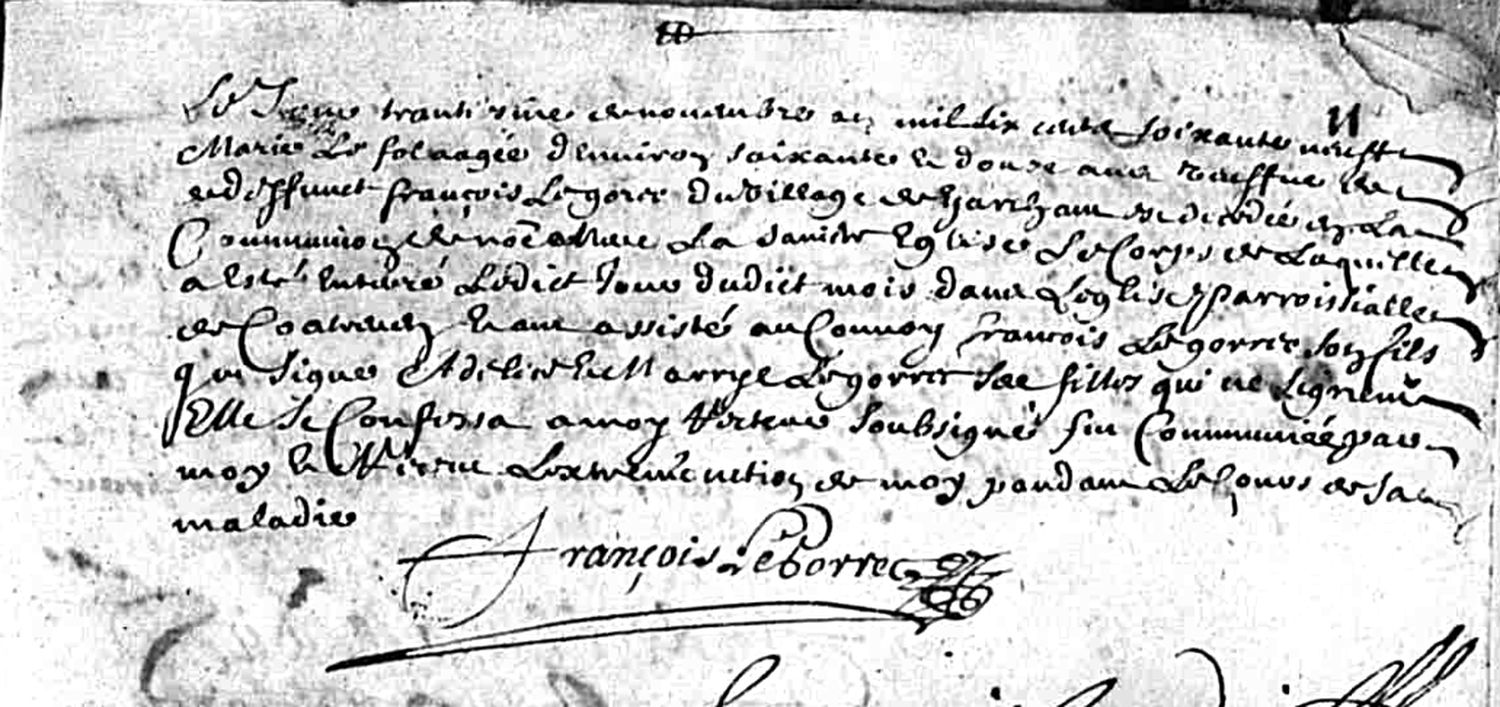 11
Le Jour trantiesme de novembre an mil six cents soixante neuff
Marie Le fol aagée d'environ soixante et douze ans veuffve de
deffunct françois Le gorec du village de est decedée en La
Communion de nōe mere La saincte Eglise Le Corps de Laquille
a Esté Enterré Ledict Jour dudict mois dans Leglise parroissialle
de Coatreven Et ont assisté au Convoy françois Le gorrec son fils
qui signe Et Marrye Le gorrec ses filles qui ne signent
Elle se Confessa a moy Recteur soubsigné fut Communiée par
moy et Receut Lextreme unction de moy pandant Le Cours de sa
maladie
François Le Gorrec